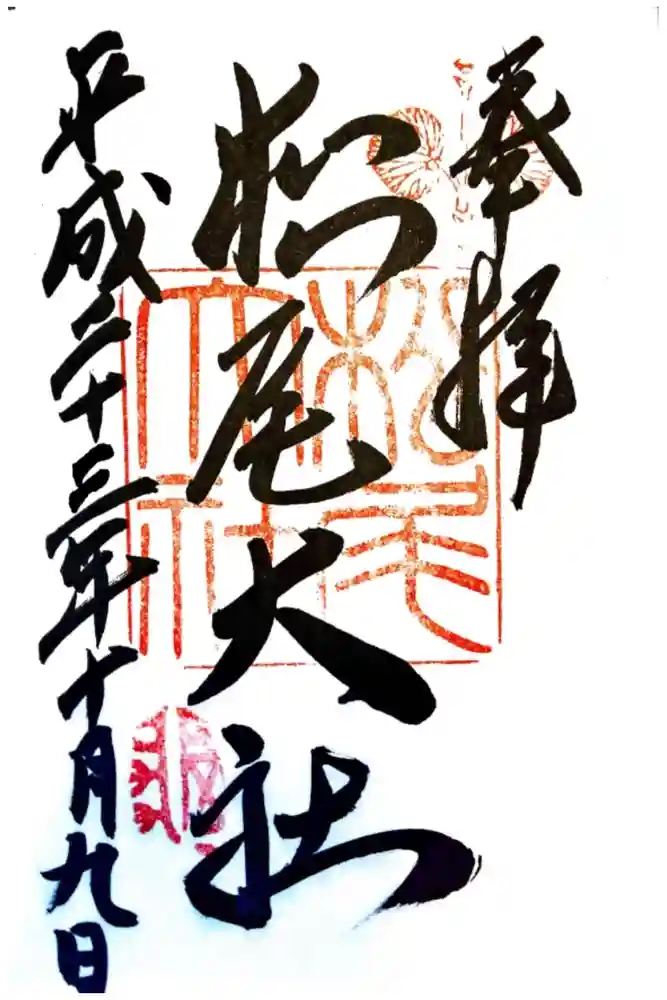 奉拝
松尾大社
平成二十三年十月九日
松尾大社